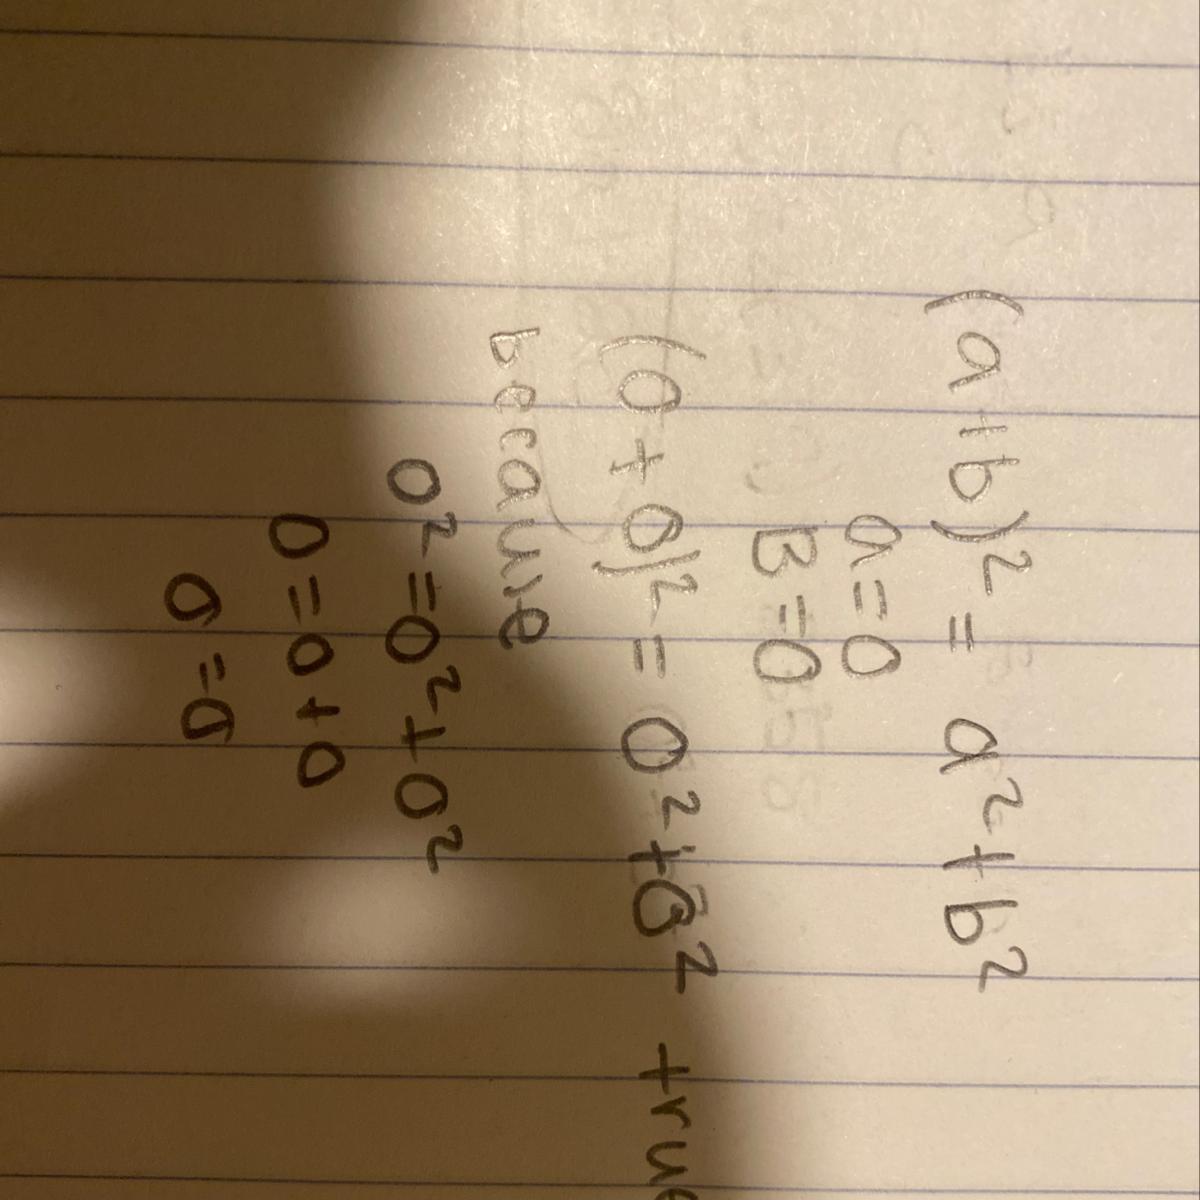 (a+b)² = a²+b²
a=0
B=0
(0+0)² = 0²+0² true
because
0²=0²+0²
0=0+0
0=0